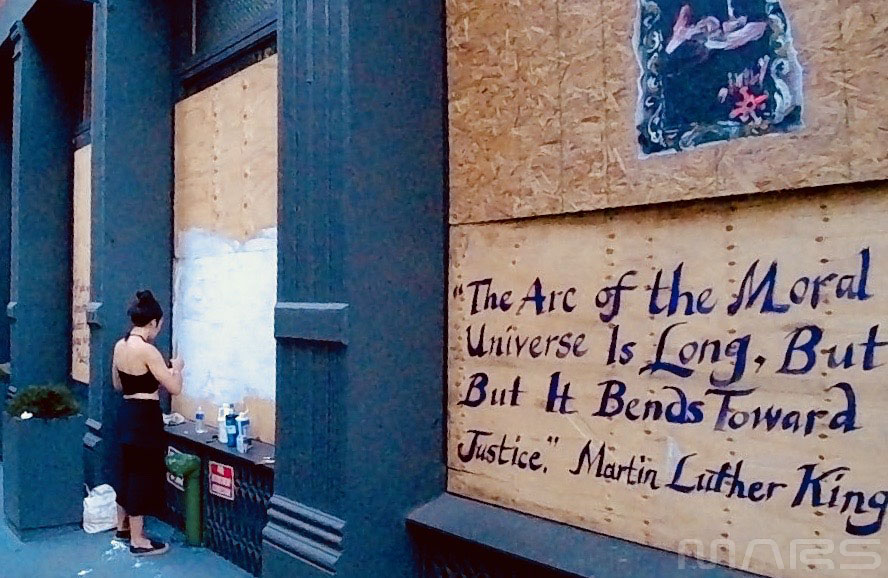 "The Arc of the Moral
Universe Is Long, But
But It Bends Toward
Justice." Martin Luther King
MARS